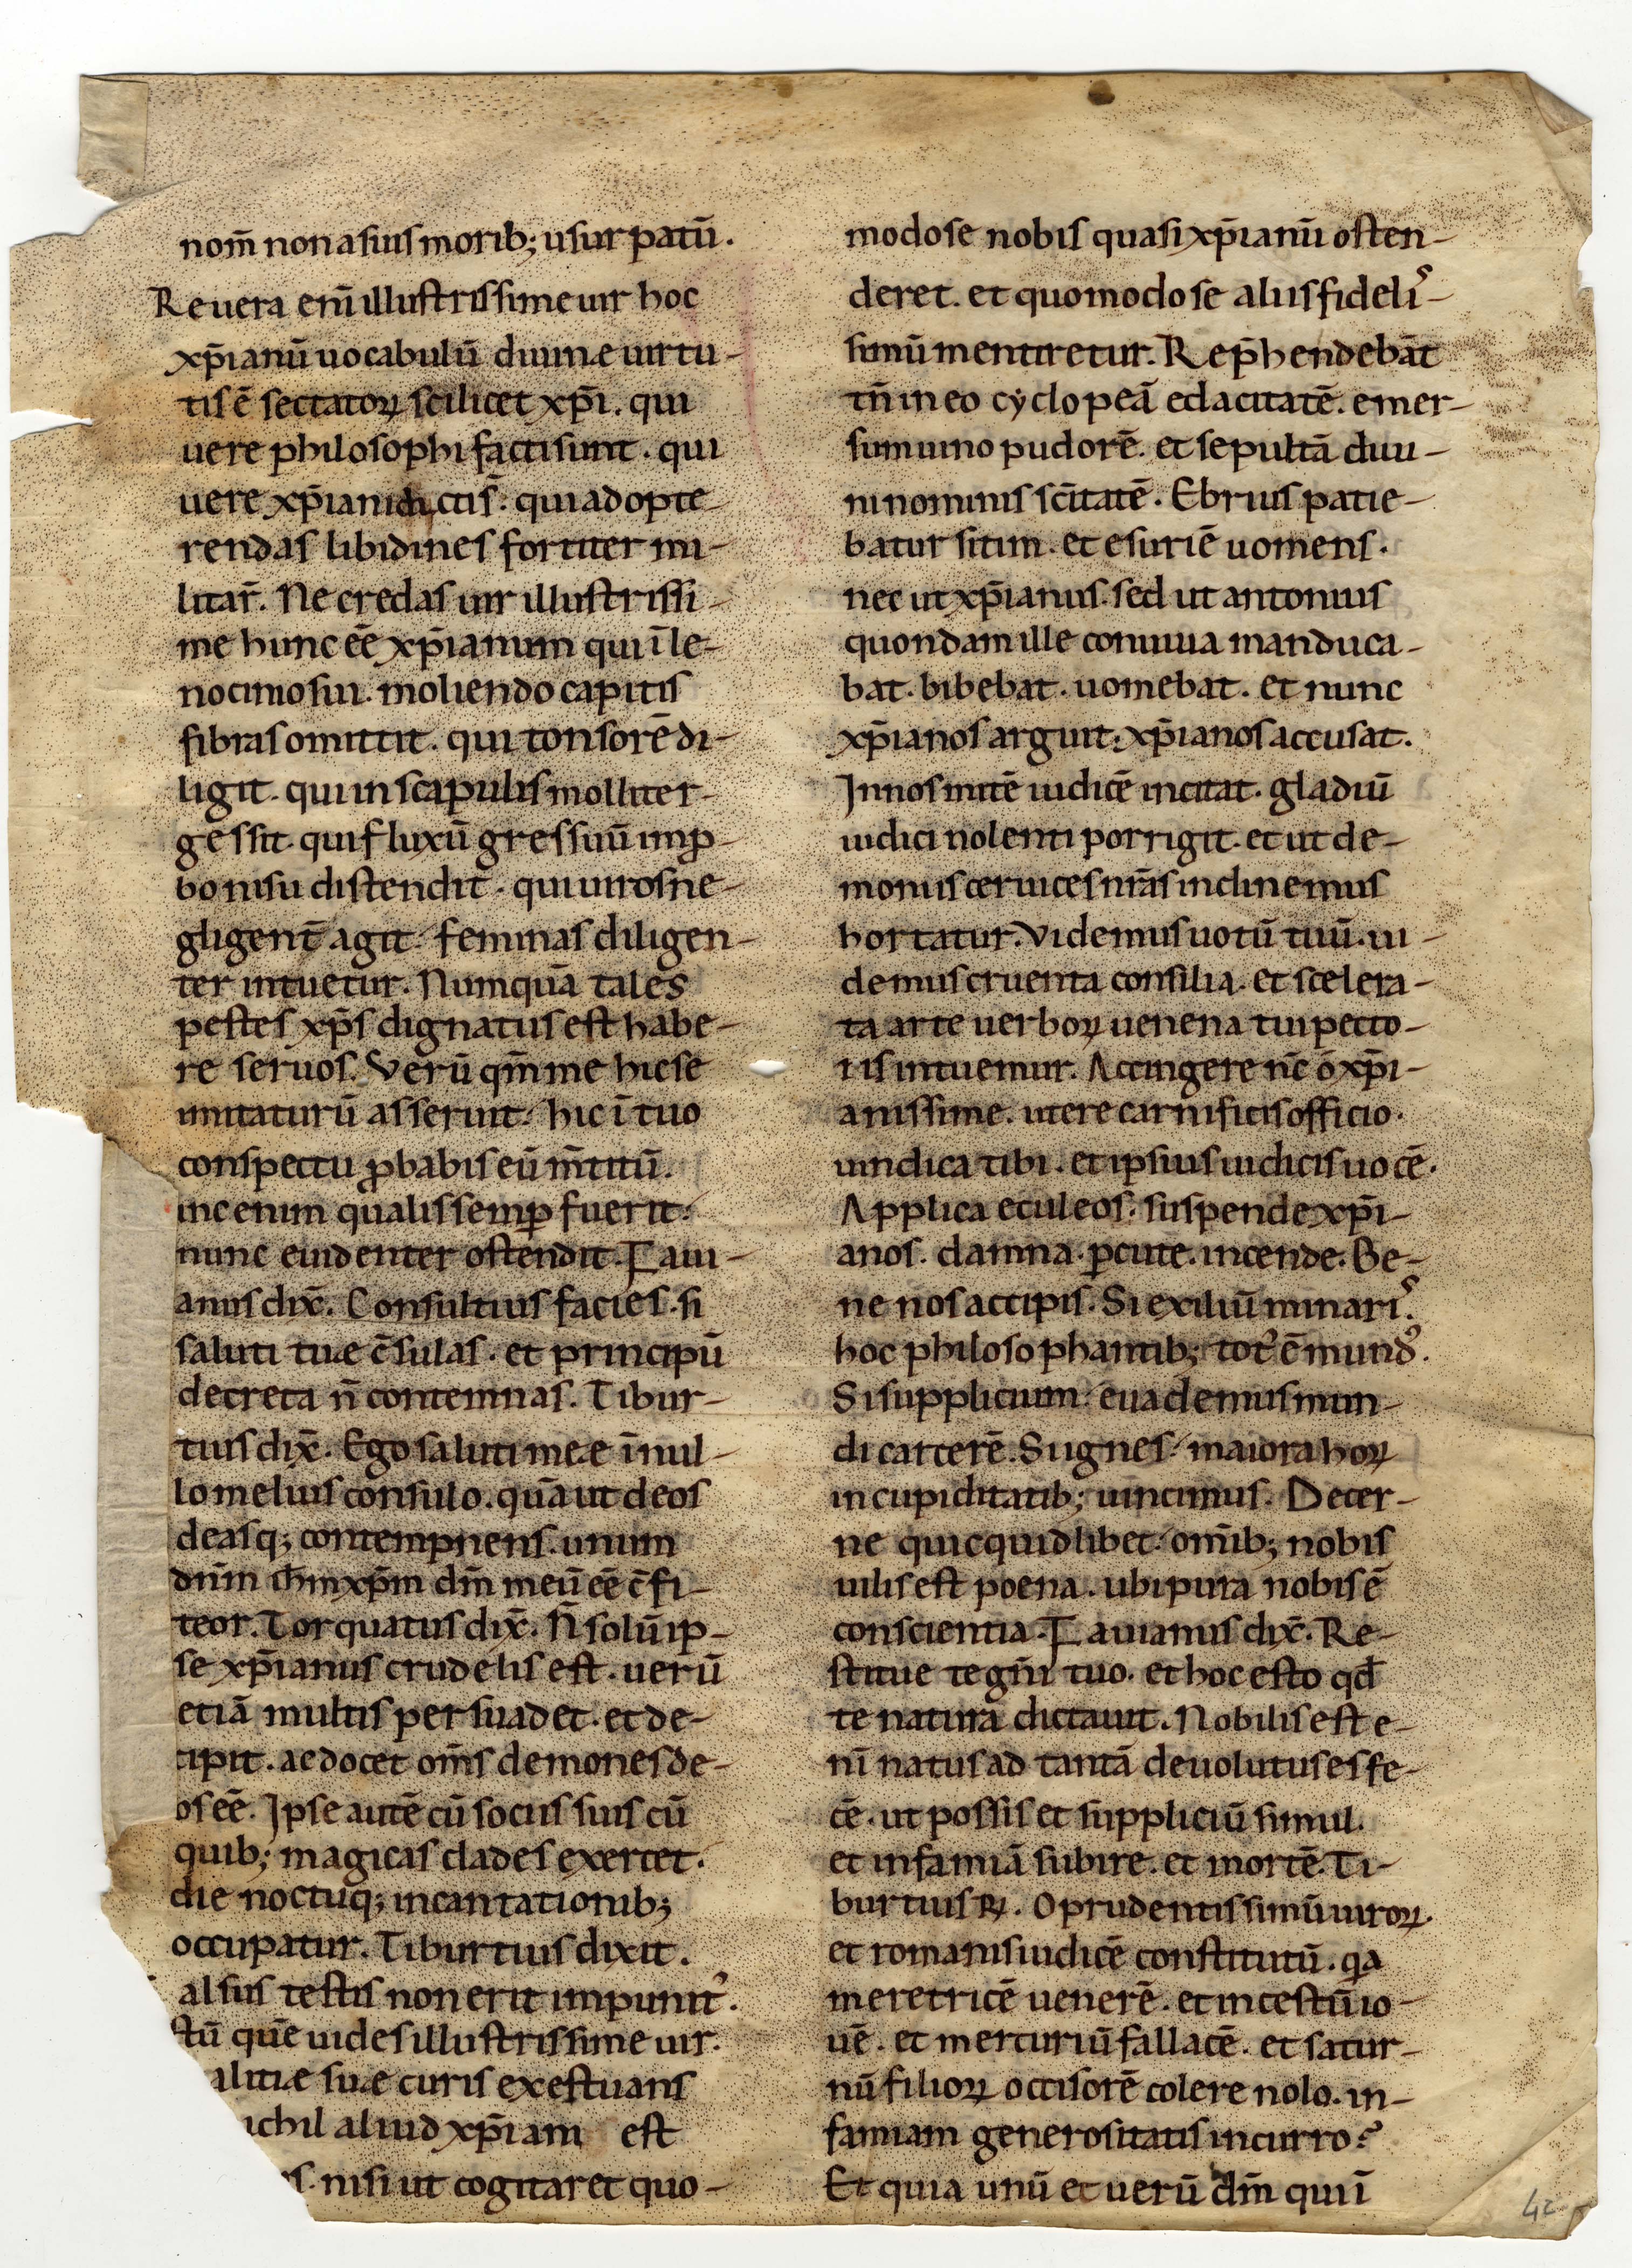 nom̄ non a suis morib; usurpatū.
Reuera eni̅ illustrissime uir hoc
xp̄ianū uocabulū diuinæ uirtu-
tis ē sectatoꝝ scilicet xp̄i. qui
uere philosophi facti sunt. qui
uere xp̄iani dicti s̄. qui ad opte-
rendas libidines fortiter mi-
litar̄. Ne credas uir illustrissi-
me hunc eē xp̄ianum qui ī le-
nocinio sui. moliendo capitis
fibras omittit. qui tonsorē di-
ligit. qui in scapulis molliter
gessit. qui fluxū gressuū imꝓ-
bo nisu distendit. qui uiros ne-
gligent̄ agit. feminas diligen-
ter intuetur. Numquā tales
pestes xp̄s dignatus est habe-
re seruos. Verū qm̄ me hic se
imitaturū asseruit. hic ī tuo
conspectu ꝓbabis eū m̄titū.
inc enim qualis semꝑ fuerit.
nunc euidenter ostendit. Faui-
anus dix̄. Consultius facies. si
saluti tuæ c̄sulas. et principū
decreta n̄ contemnas. Tibur-
tius dix̄. Ego saluti meæ ī nul-
lo melius consulo. quā ut deos
deasq; contempnens. unum
dn̄m ih̄m xp̄m dm̄ meū eē c̄fi-
teor. Torquatus dix̄. N̄ solū ip-
se xp̄ianus crudelis est. uerū
etiā multis persuadet. et de-
cipit. ac docet om̄s demones de-
os eē. Ipse autē cū sociis suis cū
quib; magicas clades exercet.
die noctuq; incantationib;
occupatur. Tiburtius dixit.
alsus testis non erit impunit᾿.
stū quē uides illustrissime uir.
alitiæ suæ curis exestuans
ichil aliud xp̄iani est
s. nisi ut cogitaret quo-
modo se nobis quasi xp̄ianū osten-
deret. et quomodo se aliis fideli᾿s-
simū mentiretur. Rep̄hendebāt
tn̄ in eo cyclopeā edacitatē. emer-
sum uino pudorē. et sepultā diui-
ni nominis sc̄itatē. Ebrius patie-
batur sitim. et esuriē uomens.
nec ut xp̄ianus. sed ut antonius
quondam ille conuiua manduca-
bat. bibebat. uomebat. et nunc
xp̄ianos arguit. xp̄ianos accusat.
In nos mitē iudicē incitat. gladiū
iudici nolenti porrigit. et ut de-
moniis ceruices nr̄as inclinemus
hortatur. Videmus uotū tuū. ui-
demus cruenta consilia. et scelera-
ta arte uerboꝝ uenena tui pecto-
ris intuemur. Accingere nc̄ o xp̄i-
anissime. utere carnificis officio.
uindica tibi. et ipsius iudicis uocē.
Applica eculeos. suspende xp̄i-
anos. damna. ꝑcute. incende. Be-
ne nos accipis. Si exiliū minari᾿s.
hoc philosophantib; tot᾿ ē mund᾿.
Si supplicium. euademus mun-
di carcerē. Si ignes. maiora hoꝝ
in cupiditatib; uincimus. Decer-
ne quicquid libet. om̄ib; nobis
uilis est poena. ubi pura nobis ē
conscientia. Fauianus dix̄. Re-
stitue te gn̄i tuo. et hoc esto qd̄
te natura dictauit. Nobilis est e-
ni̅ natus ad tantā deuolutus es fe-
cē. ut possis et suppliciū simul.
et infamiā subire. et mortē. Ti-
burtius ℞. O prudentissimū uiroꝝ.
et romanis iudicē constitutū. qa
meretricē uenerē. et incestū io-
uē. et mercuriū fallacē. et satur-
nū filioꝝ occisorē colere nolo. in-
famiam generositatis incurro?
Et quia unū et uerū dm̄ qui ī
42